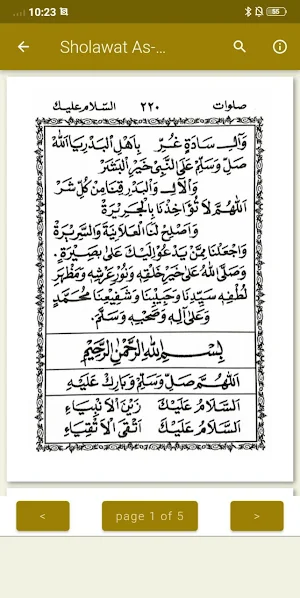 10:23
55
Sholawat As-...
صلوات ٢٢٠ السّلام عليك
وَآلِ سَادَةٍ غُرِّ بِاَهْلِ الْبَدْرِ يَا اَللهُ
صَلِّ وَسَلِّمْ عَلَى النَّبِيْ خَيْرِ الْبَشَرْ
وَالْآلِ وَالْبَدْرِ قِنَا مِنْ كُلِّ شَرْ
اَللّٰهُمَّ لَا تُؤَاخِذْنَا بِالْجَرِيْرَةْ
وَاَصْلِحْ لَنَا الْعَلَانِيَةَ وَالسَّرِيْرَةْ
وَاجْعَلْنَا مِمَّنْ يَدْعُوْ اِلَيْكَ عَلَى بَصِيْرَةْ.
وَصَلَّى اللهُ عَلَى خَيْرِ خَلْقِهِ وَنُوْرِ عَرْشِهِ وَمَظْهَرِ
لُطْفِهِ سَيِّدِنَا وَحَبِيْبِنَا وَشَفِيْعِنَا مُحَمَّدٍ
وَعَلَى آلِهِ وَصَحْبِهِ وَسَلَّمَ.
بِسْمِ اللهِ الرَّحْمٰنِ الرَّحِيْمِ
اَللّٰهُمَّ صَلِّ وَسَلِّمْ وَبَارِكْ عَلَيْهِ
اَلسَّلَامُ عَلَيْكَ زَيْنَ الْاَنْبِيَاءِ
اَلسَّلَامُ عَلَيْكَ اَتْقَى الْاَتْقِيَاءِ
< page 1 of 5 >